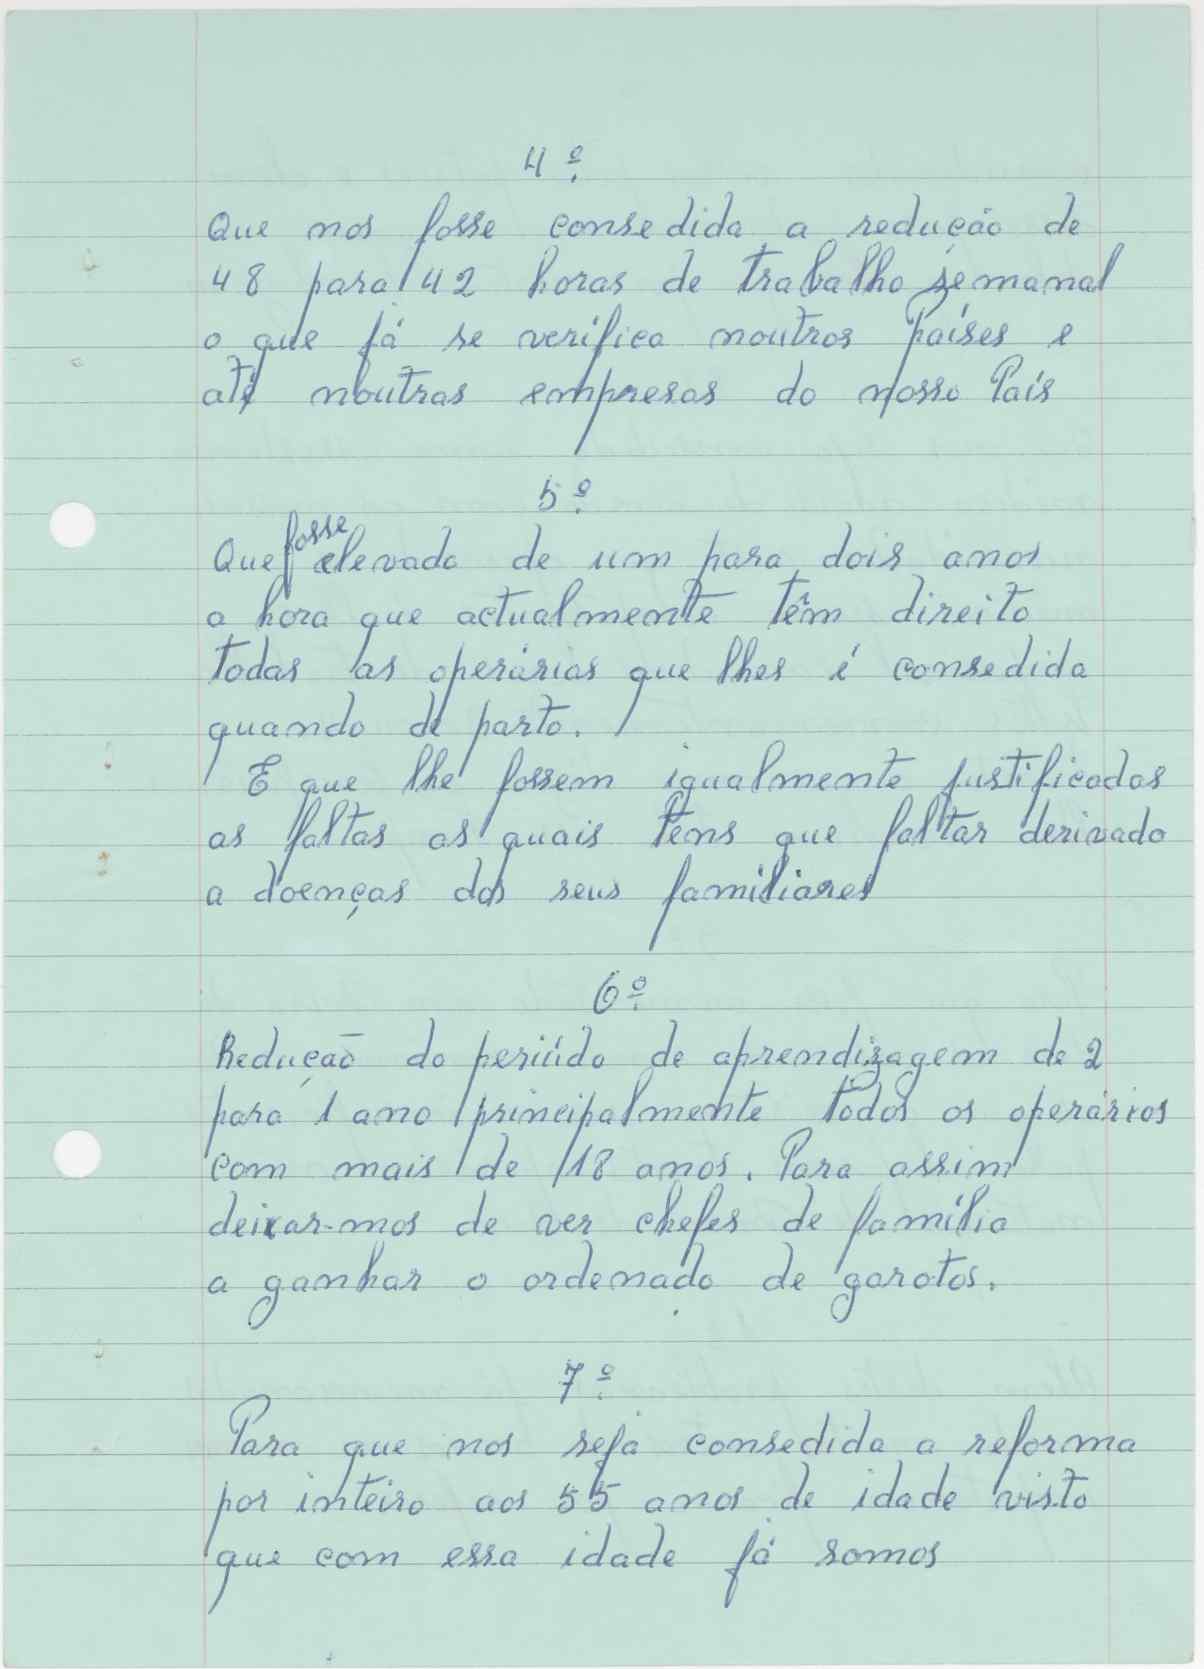 4º.
Que nos fosse consedida a redução de
48 para 42 horas de trabalho semanal
o que já se verifica noutros países e
até noutras empresas do nosso País
5º.
Que fosse elevada de um para dois anos
a hora que actualmente têm direito
todas as operárias que lhes é consedida
quando de parto.
E que lhe fossem igualmente justificadas
as faltas as quais têns que faltar derivado
a doenças dos seus familiares
6º.
Redução do periúdo de aprendizagem de 2
para 1 ano principalmente todos os operários
com mais de 18 anos. Para assim
deixar-mos de ver chefes de família
a ganhar o ordenado de garotos.
7º.
Para que nos seja consedida a reforma
por inteiro aos 55 anos de idade visto
que com essa idade já somos